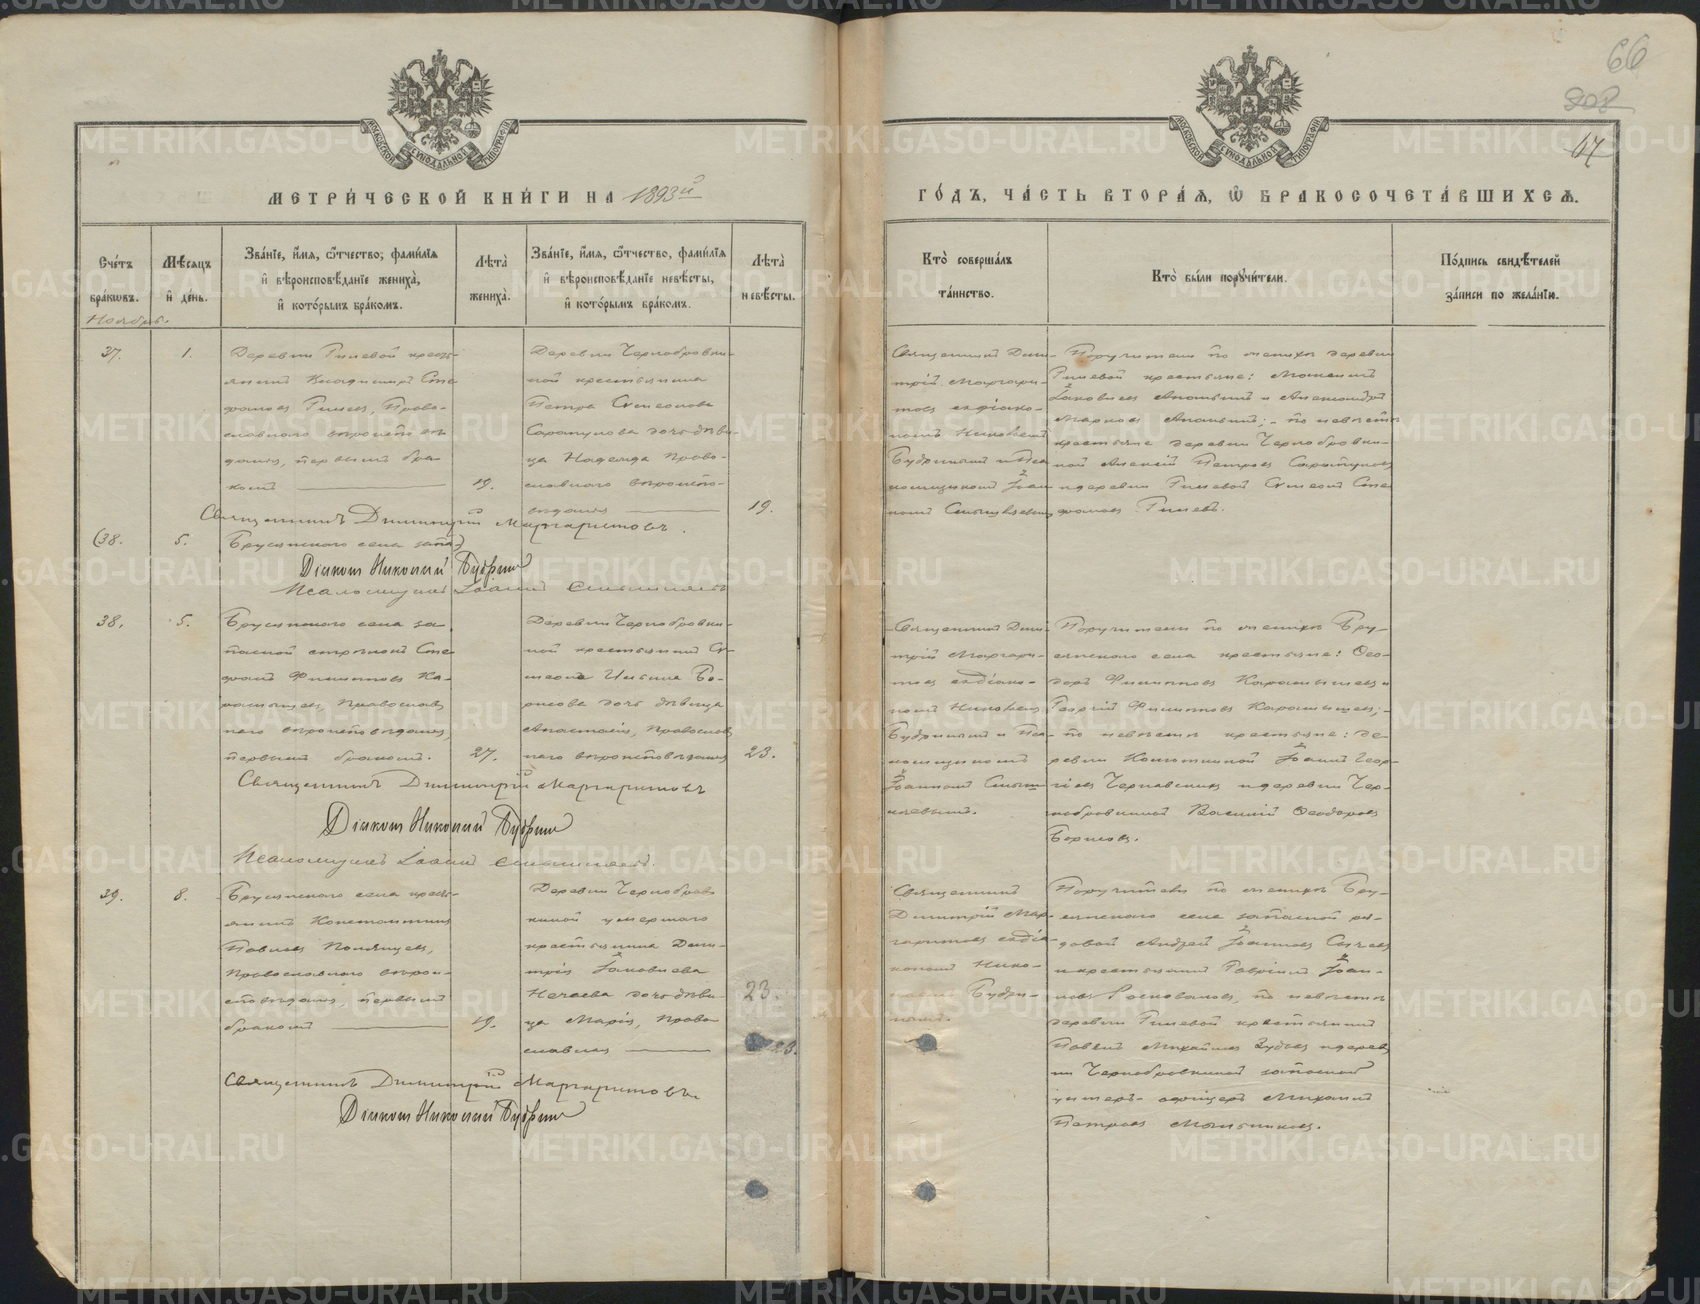 66
208
67
МОСКОВСКОЙ СѴНОДАЛЬНОЙ ТИПОГРАФІИ
МОСКОВСКОЙ СѴНОДАЛЬНОЙ ТИПОГРАФІИ
МЕТРИ́ЧЕСКОЙ КНИ́ГИ НА 1893й
ГО́ДЪ, ЧА́СТЬ ВТОРА́Я, Ѽ БРАКОСОЧЕТА́ВШИХСЯ.
Сче́тъ бра́кωвъ.
Мѣ́сяцъ и҆ де́нь.
Зва́нїе, и҆́мя, ѻ҆́тчество, фами́лїя и҆ вѣроисповѣ́данїе жениха̀, и҆ кото́рымъ бра́комъ.
Лѣта̀ жениха̀.
Зва́нїе, и҆́мя, ѻ҆́тчество, фами́лїя и҆ вѣроисповѣ́данїе невѣ́сты, и҆ кото́рымъ бра́комъ.
Лѣта̀ невѣ́сты.
Кто̀ соверша́лъ та́инство.
Кто̀ бы́ли порꙋчи́тели.
По́дпись свидѣ́телей за́писи по жела́нїю.
Ноябрь.
37.
1.
Деревни Гилевой кресть-
янинъ Владиміръ Сте
фановъ Гилевъ, Право-
славнаго вѣроиспо вѣ
данія, первымъ бра-
комъ
19.
Деревни Чернобровки-
ной крестьянина
Петра Симеонова
Сарапулова дочь дѣви-
ца Надежда Право-
славнаго вѣроиспо-
вѣданія
19.
Священникъ Дими-
трій Маргари-
товъ съ діако-
номъ Николаемъ
Будринымъ и Пса
ломщикомъ Іоан
номъ Смышляевымъ
Поручители по женихѣ деревни
Гилевой крестьяне: Максимъ
Іаковлевъ Ананьинъ и Александръ
Марковъ Ананьинъ; - по невѣстѣ
крестьяне деревни Чернобровки-
ной Алексій Петровъ Сарапуловъ
и деревни Гилевой Симеонъ Сте
фановъ Гилевъ.
Священникъ Димитрій Маргаритовъ.
(38.
5.
Брусянскаго села запа)
Діаконъ Николай Будринъ
Псаломщикъ Іоаннъ Смышляевъ
38.
5.
Брусянскаго села за
пасной стрѣлокъ Сте
фанъ Филипповъ Ка-
рамышевъ, Православ
наго вѣроисповѣданія,
первымъ бракомъ.
27.
Деревни Чернобровки-
ной крестьянина Си
меона Ильина Бо-
рисова дочь дѣвица
Анастасія, Православ
наго вѣроисповѣданія
23.
Священникъ Дими-
трій Маргари-
товъ съ діако-
номъ Николаемъ
Будринымъ и Пса-
ломщикомъ
Іоанномъ Смыш
ляевымъ.
Поручители по женихѣ Бру-
сянскаго села крестьяне: Ѳео-
доръ Филипповъ Карамышевъ и
Георгій Филипповъ Карамышевъ; -
по невѣстѣ крестьяне: де-
ревни Іоаннъ Геор-
гіевъ Чернавскихъ и деревни Чер-
нобровкиной Василій Ѳеодоровъ
Борисовъ.
Священникъ Димитрій Маргаритовъ
Діаконъ Николай Будринъ
Псаломщикъ Іоаннъ Смышляевъ.
39.
8.
Брусянскаго села кресть-
янинъ Константинъ
Павловъ Полянцевъ,
Православнаго вѣрои-
сповѣданія, первымъ
бракомъ
19.
Деревни Чернобров
киной умершаго
крестьянина Дими-
трія Іаковлева
Нечаева дочь дѣви-
ца Марія, Право
славная
23.
23.
Священникъ
Димитрій Мар-
гаритовъ съ діа-
кономъ Нико-
лаемъ Будри-
нымъ.
Поручители по женихѣ Бру-
сянскаго села запасной ря-
довой Андрей Іоанновъ Сычевъ
и крестьянинъ Гавріилъ Іоан-
новъ, по невѣстѣ
деревни Гилевой крестьянинъ
Павелъ Михайловъ Зубовъ и дерев
ни Чернобровкиной запасной
унтеръ-офицеръ Михаилъ
Петровъ Мельниковъ.
Священникъ Димитрій Маргаритовъ.
Діаконъ Николай Будринъ
METRIKI.GASO-URAL.RU